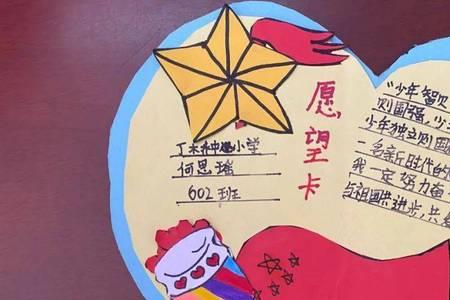 愿望卡
丁木冲小学
何思瑶
602班
"少年智则
则国强,少
少年独立则国
一名新时代的
我一定努力奋
与祖国共进步,共